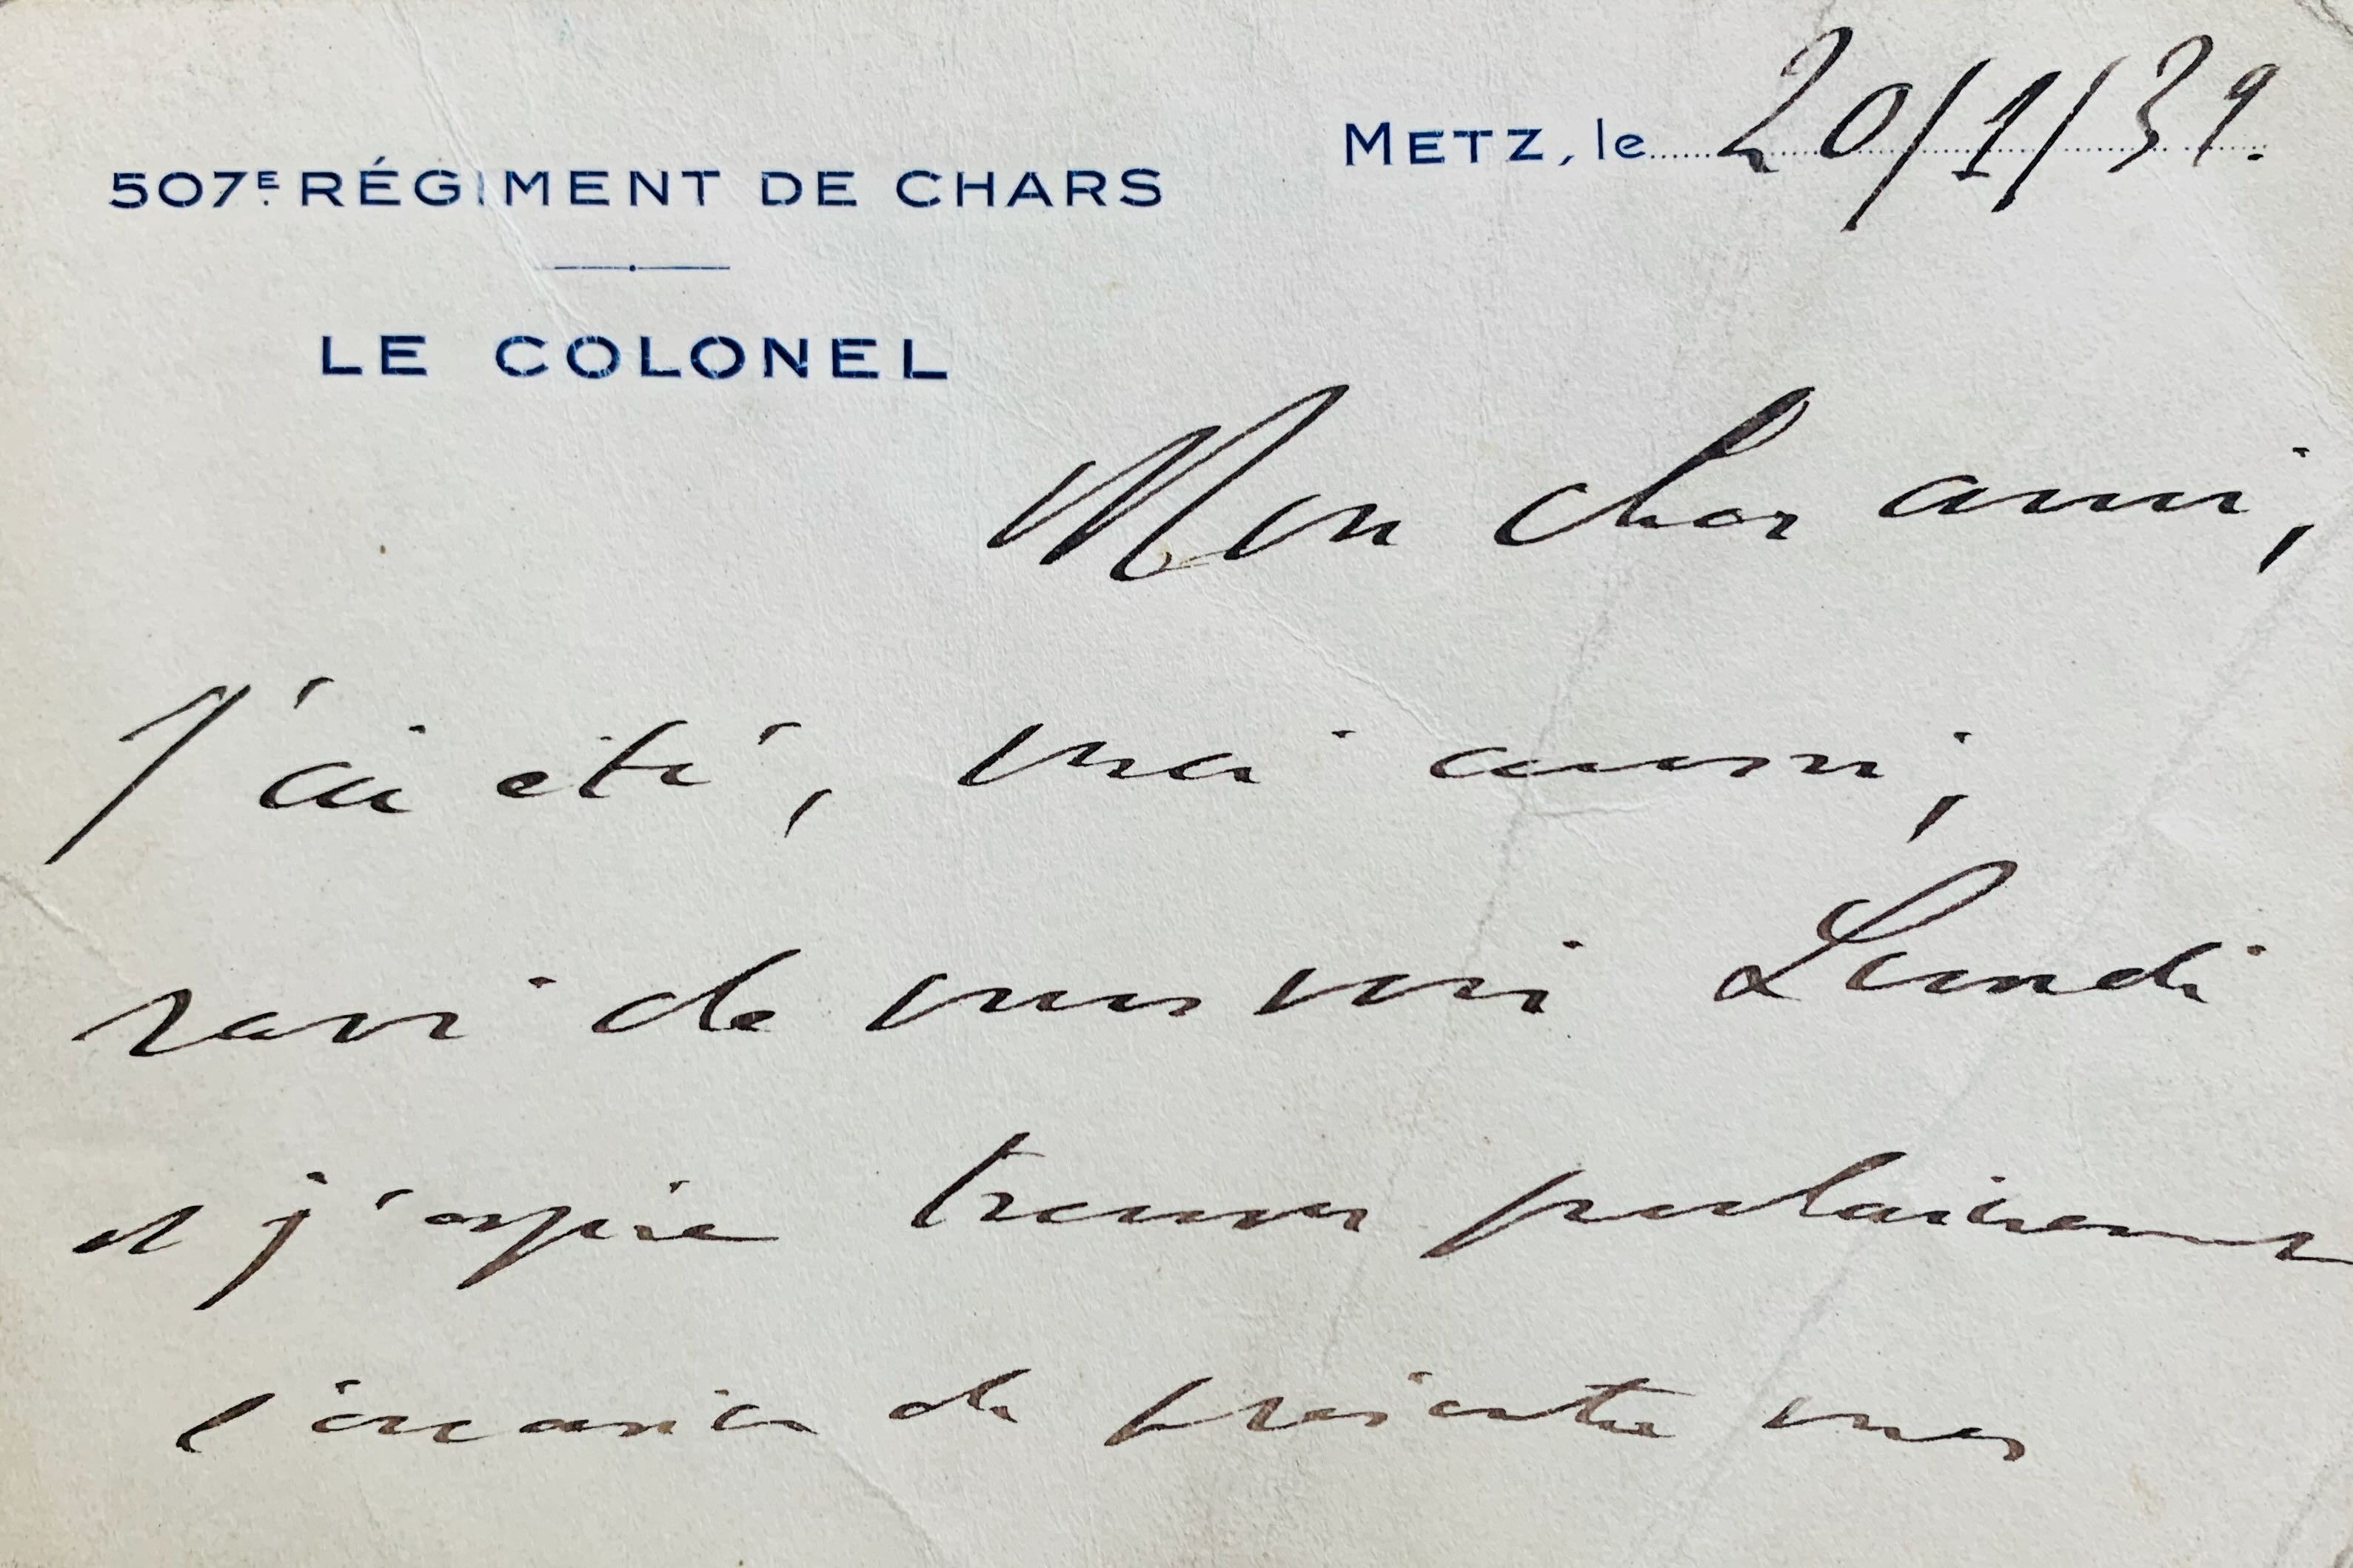 507E RÉGIMENT DE CHARS
LE COLONEL
METZ, le 20/1/39.
Mon cher ami,
J'ai été, moi aussi,
ravi de vous voir Lundi
et j'espère trouver prochainement
l'occasion de